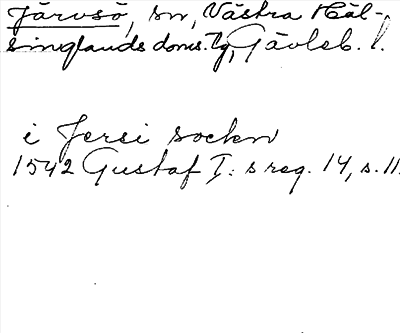 Järvsö, sn, Västra Häl-
singlands doms. tg, Gävleb. l.
i Jersi sockn
1542 Gustaf I:s reg. 14, s. 11.